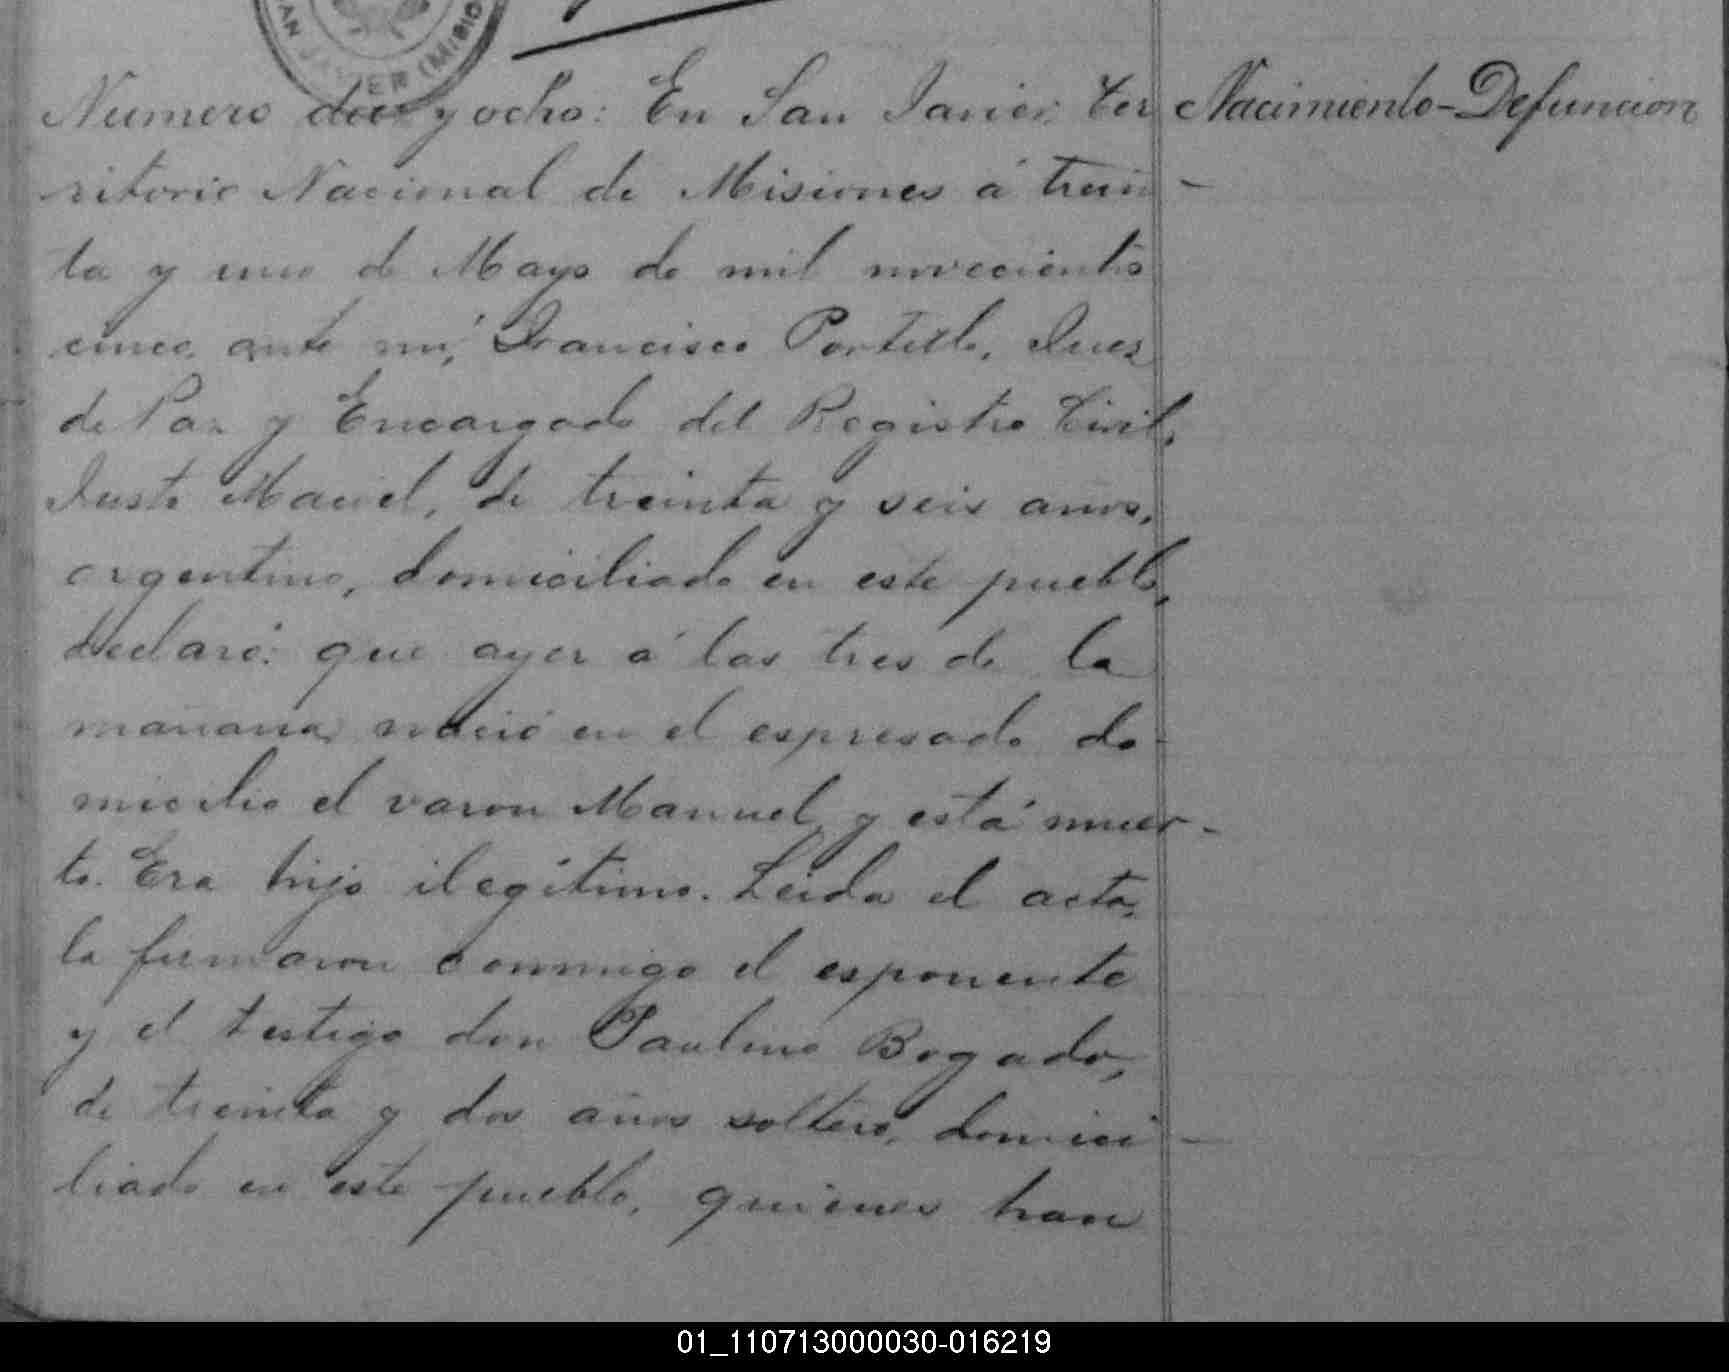 SAN JAVIER (MISIO
Numero diez y ocho: En San Javier, Ter
ritorio Nacional de Misiones á trein-
ta y uno de Mayo de mil novecientos
cinco, ante mí, Francisco Portillo, Juez
de Paz y Encargado del Registro Civil,
Justo Maciel, de treinta y seis anos,
argentino, domiciliado en este pueblo,
declaró: que ayer á las tres de la
mañana nació en el espresado do-
micilio el varon Manuel, y está muer-
to. Era hijo ilegítimo. Leida el acta,
la firmaron conmigo el esponente
y el testigo don Paulino Bogado,
de treinta y dos años soltero, domici-
liado en este pueblo, quienes han
Nacimiento-Defuncion
01_110713000030-016219